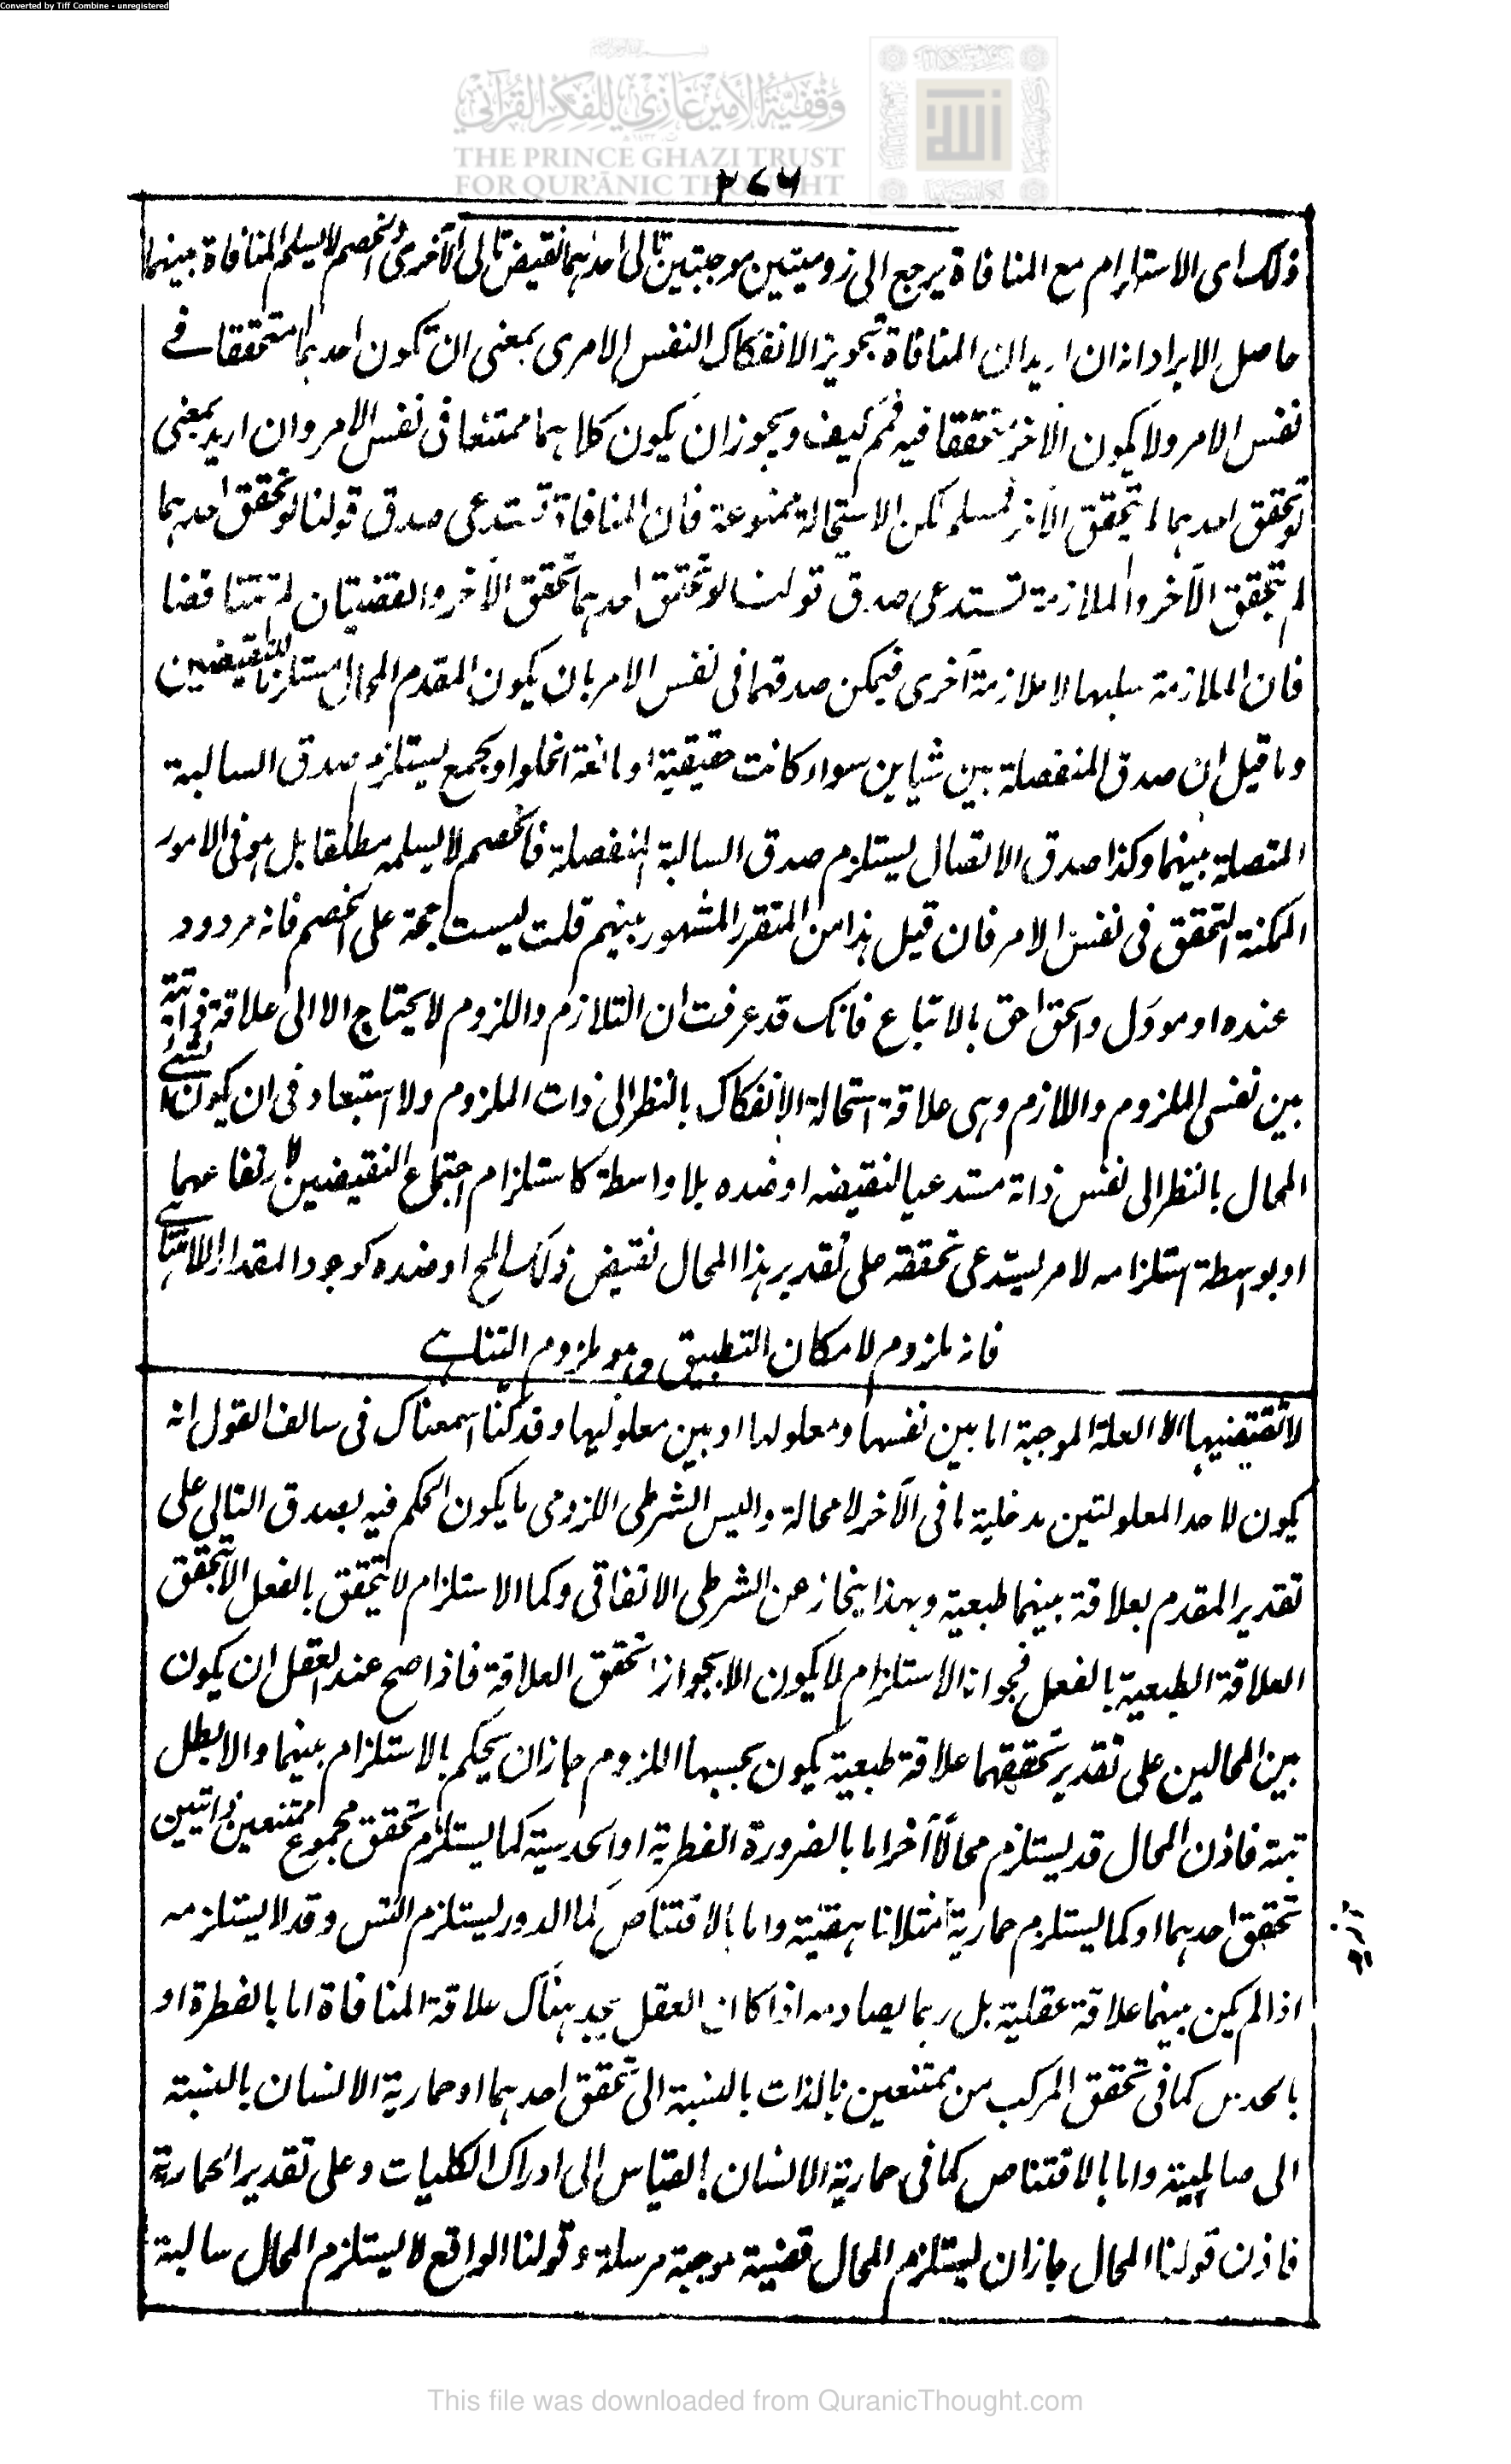 Converted by Tiff Combine - unregistered
وقفية الأمير غازي للفكر القرآني
THE PRINCE GHAZI TRUST
FOR QUR'ĀNIC THOUGHT
٢٧٦
ذلك اى الاستلزام مع المنافاة يرجع الى لزوميتين موجبتين تالى احدهما نقيض تالى الآخرى والخصم لا يسلم المنافاة بينهما
حاصل الايراد انه ان اريد ان المنافاة تجويز الانفكاك النفس الامرى بمعنى ان تكون احدهما متحققا فے
نفس الامر ولا يكون الآخر متحققا فيه فمم كيف ويجوز ان يكون كلاهما ممتنعا فى نفس الامر وان اريد بمعنى
لو تحقق احدهما لم يتحقق الآخر فمسلم لكن الاستحالة ممنوعة فان المنافاة تستدعى صدق قولنا لو تحقق احدهما
لم يتحقق الآخر والملازمة تستدعى صدق قولنا لو تحقق احدهما تحقق الآخر والقضيتان لم تتناقضا
فان الملازمة سلبها لا ملازمة آخرى فيمكن صدقهما فى نفس الامر بان يكون المقدم المحال مستلزما للنقيضين
وما قيل ان صدق المنفصلة بين شيئين سواء كانت حقيقية او مانعة الخلو او الجمع يستلزم صدق السالبة
المتصلة بينهما وكذا صدق الاتصال يستلزم صدق السالبة المنفصلة فالخصم لا يسلمه مطلقا بل هو فى الامور
الممكنة التحقق فى نفس الامر فان قيل هذا من المتقرر المشهور بينهم قلت ليست بحجة على الخصم فانه مردود
عنده او مؤول والحق احق بالاتباع فانك قد عرفت ان التلازم واللزوم لا يحتاج الا الى علاقة ذاتية
بين نفس الملزوم واللازم وهى علاقة استحالة الانفكاك بالنظر الى ذات الملزوم ولا استبعاد فى ان يكون الشئ
المحال بالنظر الى نفس ذاته مستدعيا لنقيضه او ضده بلا واسطة كاستلزام اجتماع النقيضين لارتفاعهما
او بواسطة استلزامه لامر يستدعى تحققه على تقدير هذا المحال نقيض ذلك المح او ضده كوجود المقدار اللامتناهے
فانه ملزوم لامكان التطبيق وهو ملزوم التناهے
لا تقتضيها الا العلة الموجبة اما بين نفسها ومعلولها او بين معلوليها وقد كنا اسمعناك فى سالف القول انه
يكون لاحد المعلولتين مدخلية ما فى الآخر لا محالة واليس الشرطى اللزومى ما يكون الحكم فيه بصدق التالى على
تقدير المقدم بعلاقة بينهما طبعية وبهذا ينحاز عن الشرطى الاتفاقى وكما الاستلزام لا يتحقق بالفعل الا بتحقق
العلاقة الطبعية بالفعل فجواز الاستلزام لا يكون الا بجواز تحقق العلاقة فاذا صح عند العقل ان يكون
بين المحالين على تقدير تحققهما علاقة طبعية يكون بحسبها اللزوم جاز ان يحكم بالاستلزام بينهما والا بطل
بتة فاذن المحال قد يستلزم محالًا آخر اما بالضرورة الفطرية او الحدسية كما يستلزم تحقق مجموع ممتنعين ذاتيين
تحقق احدهما او كما يستلزم حمارية مثلا ناهقيته واما بالاقتناص كما الدور يستلزم التس وقد لا يستلزمه
اذا لم يكن بينهما علاقة عقلية بل ربما يصادمه اذا كان العقل يجد هناك علاقة المنافاة اما بالفطرة او
بالحدس كما فى تحقق المركب من ممتنعين بالذات بالنسبة الى تحقق احدهما او حمارية الانسان بالنسبة
الى صاهليته واما بالاقتناص كما فى حمارية الانسان بالقياس الى ادراك الكليات وعلى تقدير الحمارية
فاذن قولنا المحال جاز ان يستلزم المحال قضية موجبة مرسلة وقولنا الواقع لا يستلزم المحال سالبة
This file was downloaded from QuranicThought.com